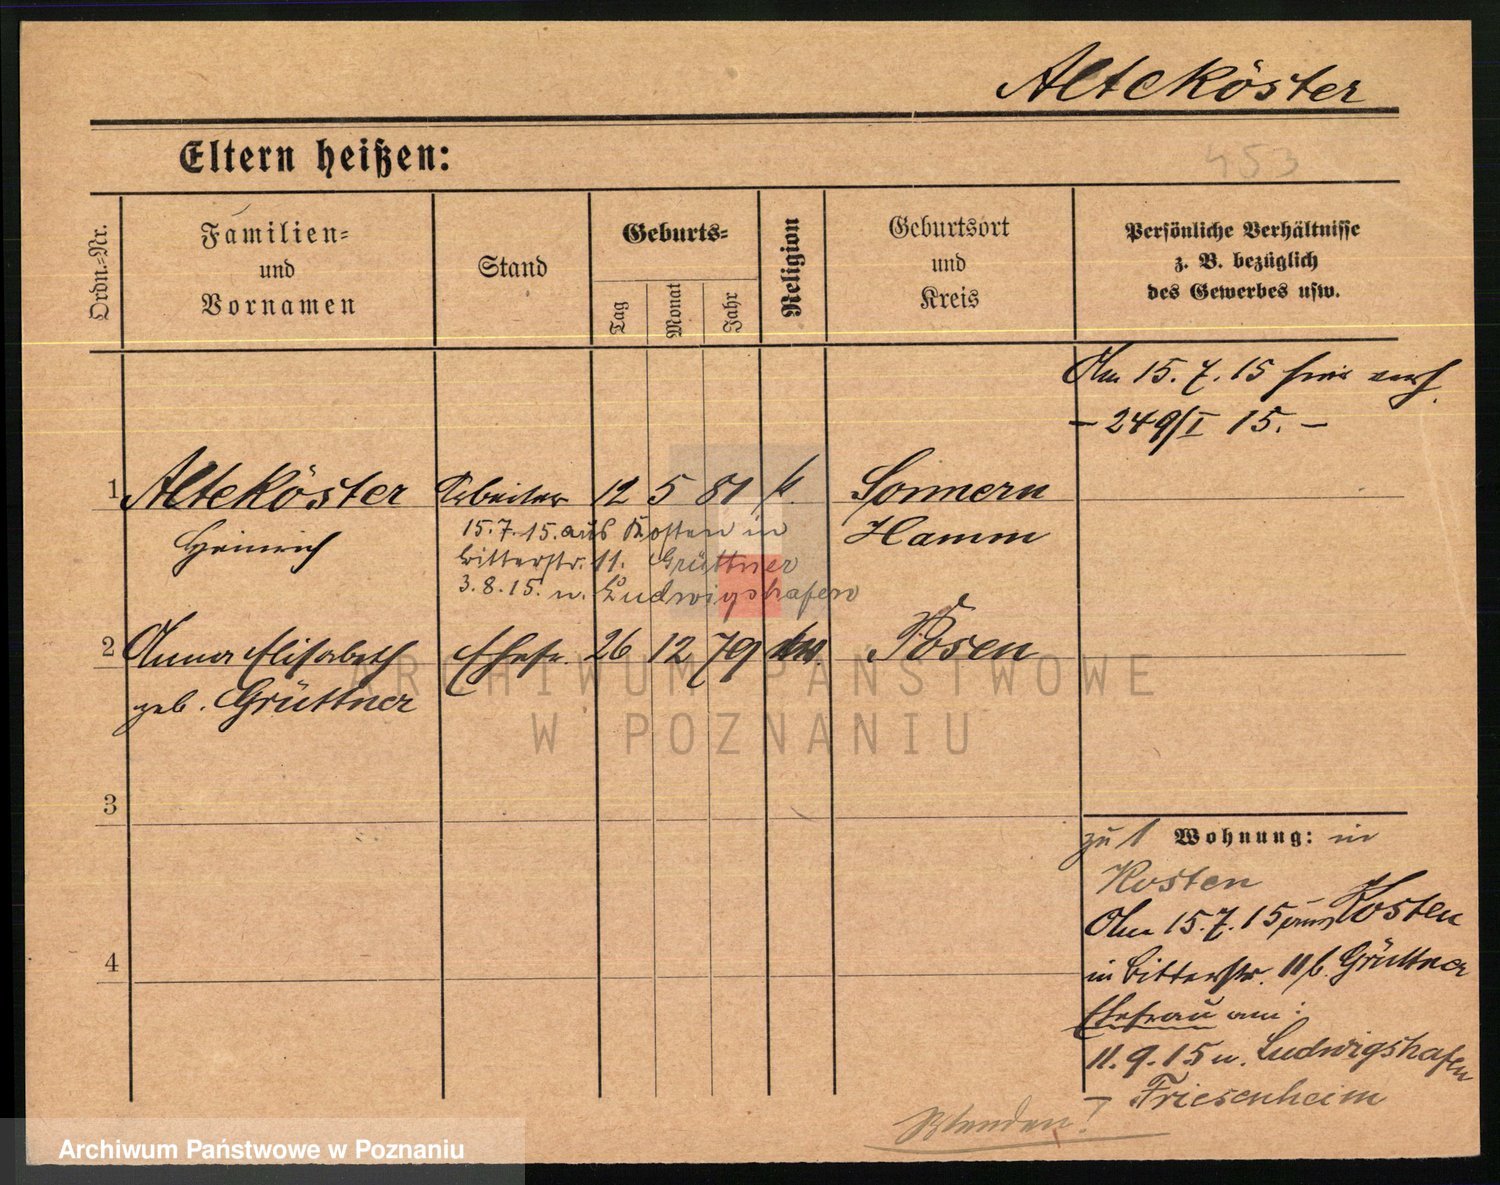 Alteköster
Eltern heißen:
453
Ordn.-Nr.
Familien- und Vornamen
Stand
Geburts-
Tag
Monat
Jahr
Religion
Geburtsort und Kreis
Persönliche Verhältnisse
z. B. bezüglich
des Gewerbes usw.
Am 15.7.15 hier verh.
- 249/I 15. -
1 Alteköster Arbeiter 12 5 81 k. Sonnern
Heinrich Hamm
15.7.15. aus Kosten in
Bitterstr. 11. Grüttner
3.8.15. n. Ludwigshafen
2 Anna Elisabeth Ehefr. 26 12 79 Posen
geb. Grüttner
ARCHIWUM PAŃSTWOWE
W POZNANIU
3
4
zu 1 Wohnung: in
Kosten
Am 15.7.15 aus Kosten
in Bitterstr. 11 b. Grüttner
Ehefrau am:
11.9.15 n. Ludwigshafen
- Friesenheim
Archiwum Państwowe w Poznaniu